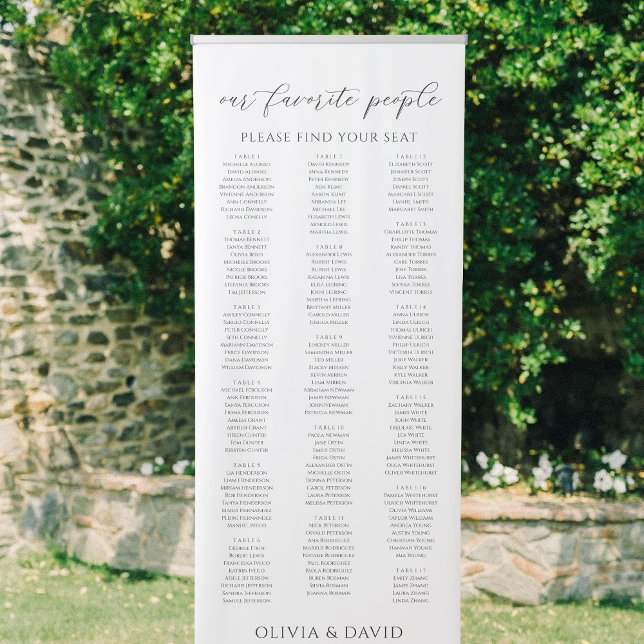 our favorite people
PLEASE FIND YOUR SEAT
TABLE 1
MICHELLE ALONSO
DAVID ALONSO
AMELIA ANDERSON
BRANDON ANDERSON
VIVIENNE ANDERSON
ANN CONNELLY
RICHARD DAVIDSON
LEONA CONNELLY
TABLE 2
THOMAS BENNETT
TANYA BENNETT
OLIVIA BOLD
MICHELLE BROOKS
NICOLE BROOKS
PATRICK BROOKS
STEFANIE BROOKS
TIM JEFFERSON
TABLE 3
ASHLEY CONNELLY
SERGIO CONNELLY
PETER CONNELLY
SETH CONNELLY
MARIANN DAVIDSON
PERCY DAVIDSON
DIANA DAVIDSON
WILLIAM DAVIDSON
TABLE 4
MICHAEL FERGUSON
ANN FERGUSON
TANYA FERGUSON
FIONA FERGUSON
AMELIA GRANT
ARTHUR GRANT
HELEN GUNTER
TOM GUNTER
KIRSTEN GUNTER
TABLE 5
LIA HENDERSON
LIAM HENDERSON
MIRIAM HENDERSON
ROB HENDERSON
TANYA HENDERSON
MARIA HERNANDEZ
PEDRO HERNANDEZ
MANUEL IVECO
TABLE 6
ROBERT LEWIS
FRANCESCO IVECO
KATRIN IVECO
ADELE JEFFERSON
RICHARD JEFFERSON
SANDRA JEFFERSON
SAMUEL JEFFERSON
TABLE 7
DAVID KENNEDY
MINA KENNEDY
PETER KENNEDY
ADA KLIMT
AARON KLIMT
MIRANDA LEE
MICHAEL LEE
ELISABETH LEWIS
ARNOLD LEWIS
MARTHA LEWIS
TABLE 8
ALEXANDER LEWIS
ROBERT LEWIS
RUPERT LEWIS
KATARINA LEWIS
ELISA LEERING
JOHN LEERING
MARTHA LEERING
BRITTANY MILLER
CAROLO MILLER
JOSHUA MILLER
TABLE 9
LINDSEY MILLER
SAMANTHA MILLER
TED MILLER
STACEY MIRREN
KEVIN MIRREN
LIAM MIRREN
ABRAHAM NEWMAN
JAMES NEWMAN
JOHN NEWMAN
PATRICIA NEWMAN
TABLE 10
PAOLA NEWMAN
JANE OSTIN
EMILY OSTIN
ERICA OSTIN
ALEXANDER OSTIN
MICHELLE OSTIN
DONNA PETERSON
CAROL PETERSON
LAURA PETERSON
MELISSA PETERSON
TABLE 11
NICK PETERSON
OSVALD PETERSON
ANA RODRIGUEZ
MARKUS RODRIGUEZ
NATALIE RODRIGUEZ
PAUL RODRIGUEZ
PAOLA RODRIGUEZ
RUBEN ROSMAN
SILVIA ROSMAN
JOANNA ROSMAN
TABLE 12
ELIZABETH SCOTT
JENNIFER SCOTT
JOSEPH SCOTT
DANIEL SCOTT
MARGARET SCOTT
DANIEL SMITH
MARGARET SMITH
TABLE 13
CHARLOTTE THOMAS
PHILIP THOMAS
RANDY THOMAS
ALEXANDER TORRES
CARL TORRES
JOSE TORRES
LISA TORRES
SOPHIA TORRES
VINCENT TORRES
TABLE 14
ANNA ULRICH
LINDA ULRICH
THOMAS ULRICH
VIVIENNE ULRICH
PHILIP ULRICH
VICTORIA ULRICH
JULIE WALKER
KELLY WALKER
KYLE WALKER
VIRGINIA WALKER
TABLE 15
ZACHARY WALKER
JAMES WHITE
JOHN WHITE
FREDERIC WHITE
LEA WHITE
LINDA WHITE
MELISSA WHITE
JAMES WHITEHURST
OLGA WHITEHURST
OLIVER WHITEHURST
TABLE 16
PAMELA WHITEHURST
ULRICH WHITEHURST
OLIVER WILLIAMS
TAYLOR WILLIAMS
ANDREA YOUNG
AUSTIN YOUNG
CHRISTIAN YOUNG
HANNAH YOUNG
MIA YOUNG
TABLE 17
EMILY ZHANG
CHARLES ZHANG
LAURA ZHANG
LINDA ZHANG
OLIVIA & DAVID